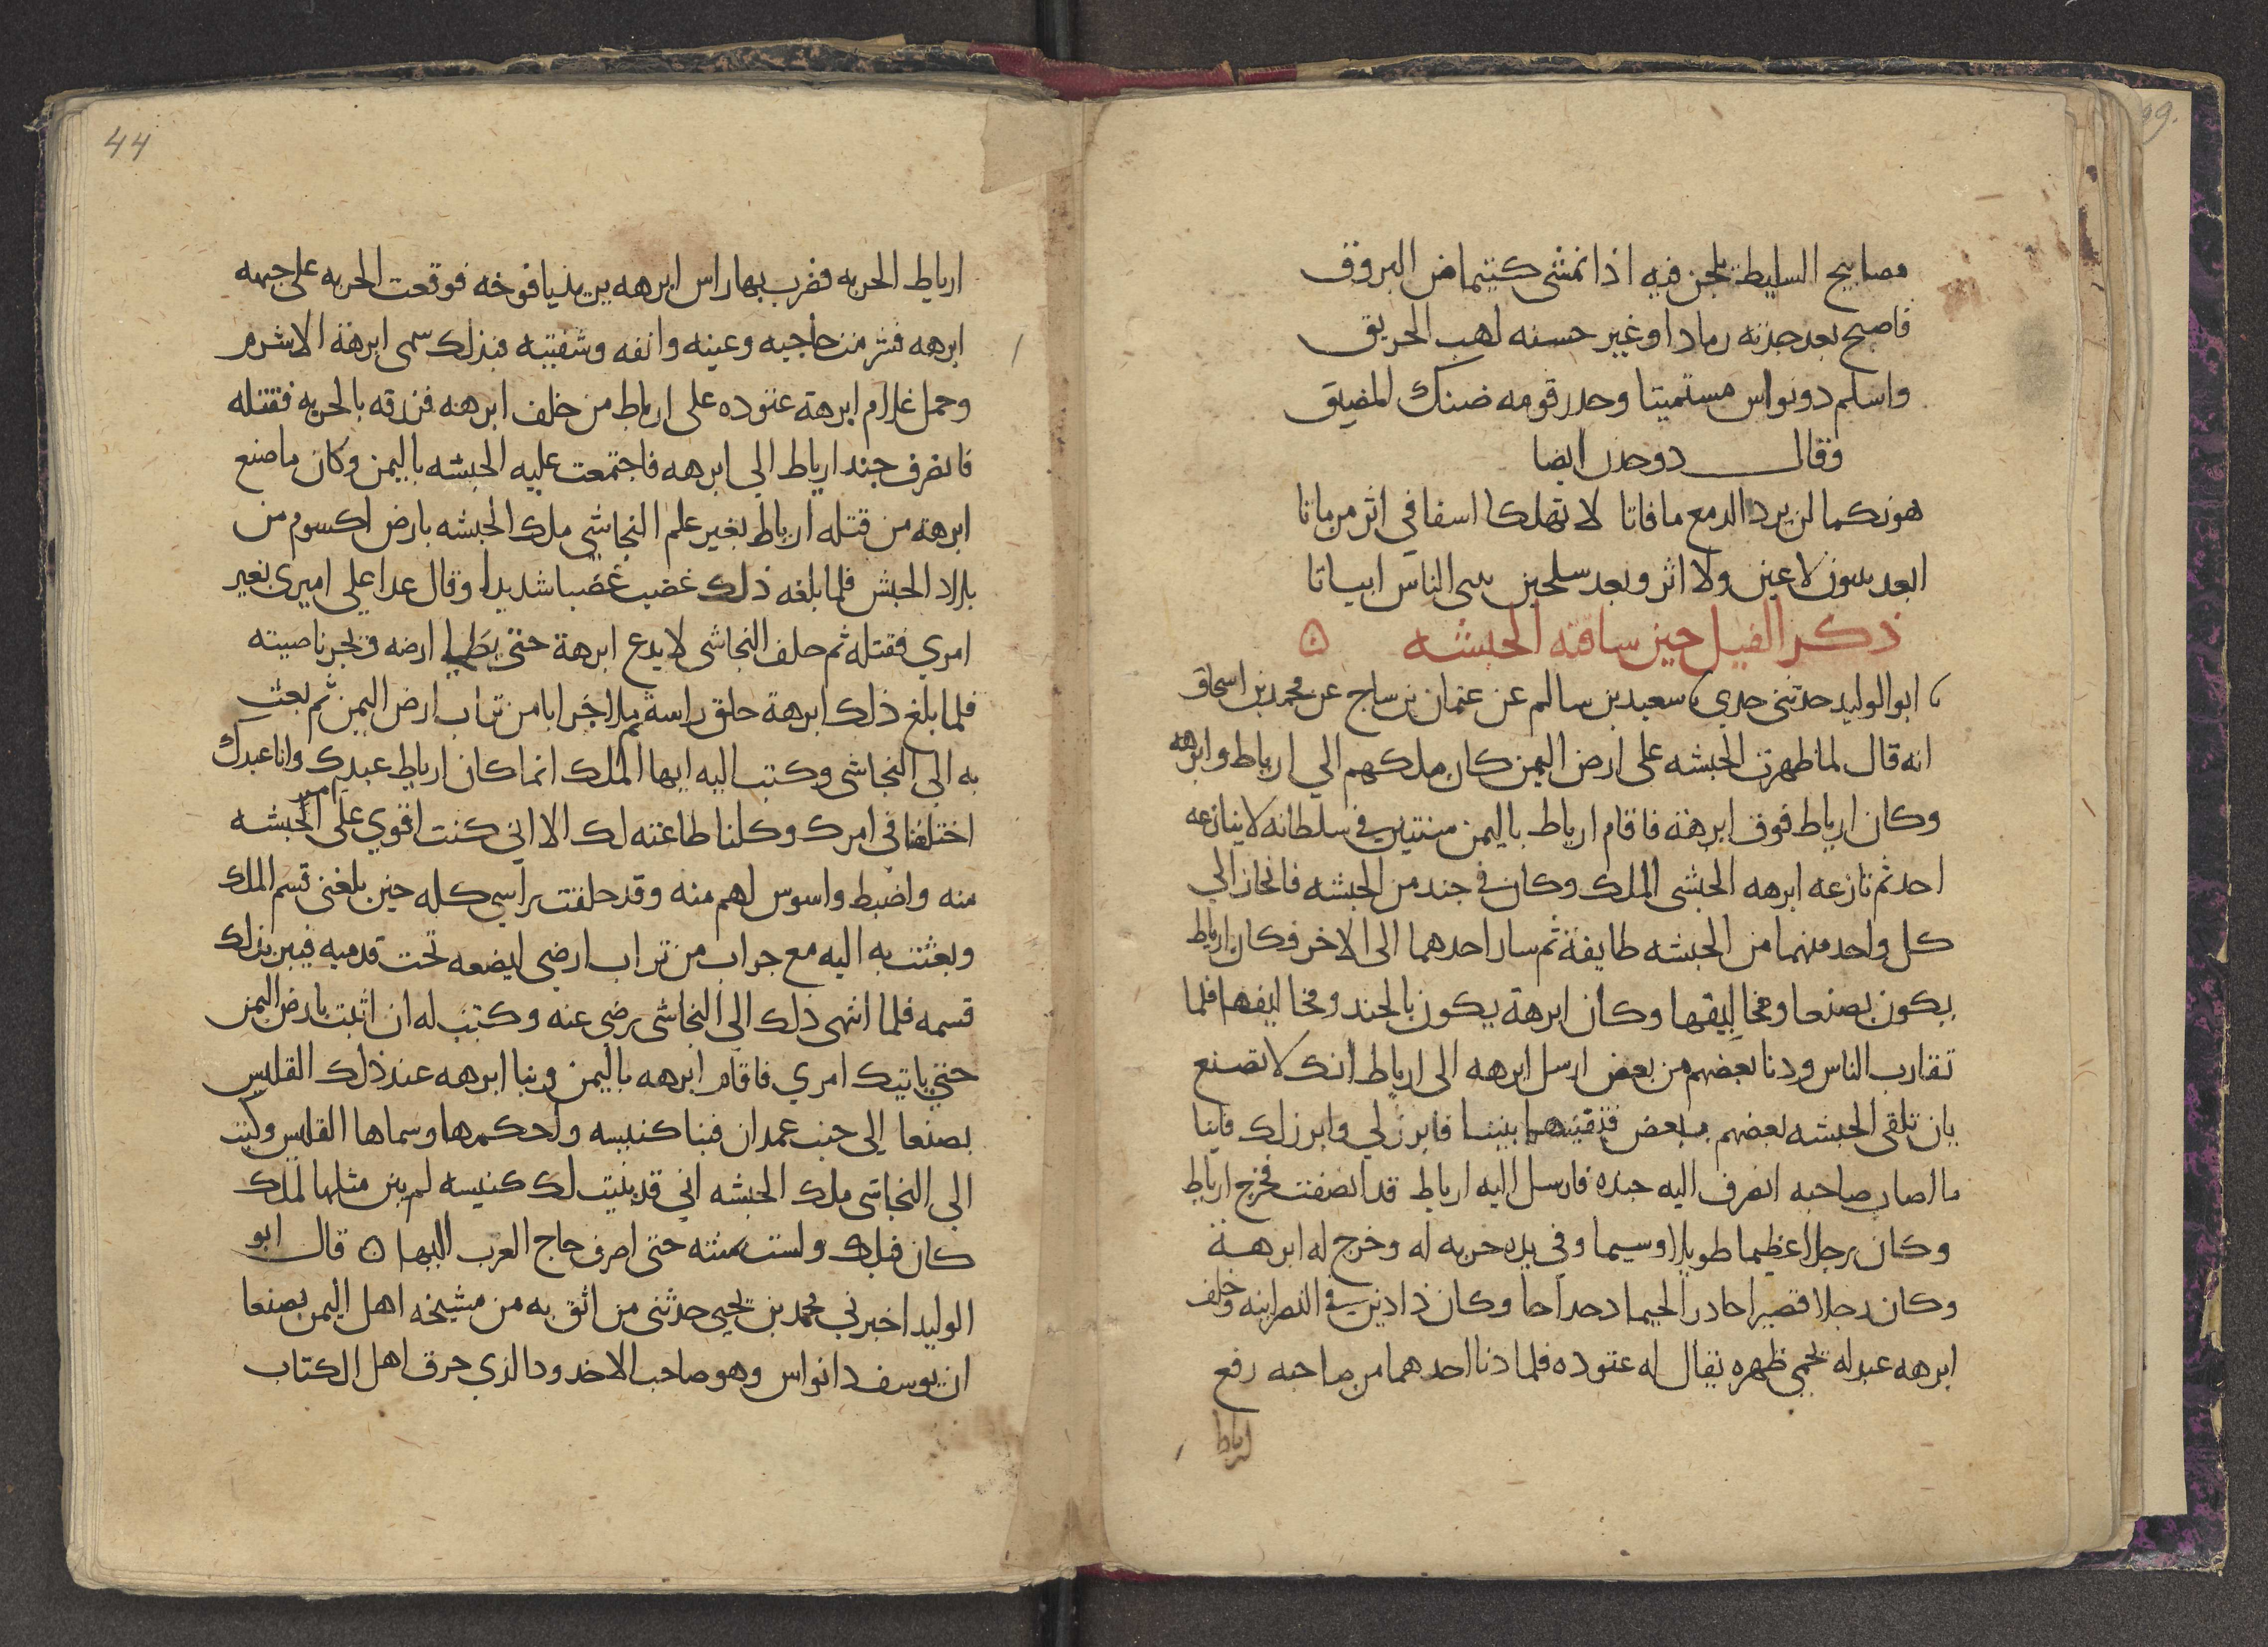 مصابيح السليط يلحن فيه اذا تمشى كتيماض البروق
فاصبح بعد جدته رمادا وغير حسنه لهب الحريق
واسلم دونواس مستميتا وحدر قومه ضنك المضيق
وقال دوجدن ايضا
هونكما لن يرد الدمع مافاتا لا تهلكا اسفا في اثر من ماتا
ابعد بينون لا عين ولا اثر وبعد سلحين يبنى الناس ابياتا
ذكر الفيل حين ساقته الحبشه ۵
ابو الوليد حدثنى جدي سعيد بن سالم عن عثمان بن ساج عن محمد بن اسحاق
انه قال لما ظهرت الحبشه على ارض اليمن كان ملكهم الي ارياط وابرهه
وكان ارياط فوق ابرهة فاقام ارياط باليمن سنتين في سلطانه لا ينازعه
احد ثم نازعه ابرهه الحبشى الملك وكان في جند من الحبشه فانحاز الي
كل واحد منهما من الحبشه طايفة ثم سار احدهما الى الاخر فكان ارياط
يكون بصنعا ومخاليفها وكان ابرهة يكون بالجند ومخاليفها فلما
تقارب الناس ودنا بعضهم من بعض ارسل ابرهه الى ارياط انك لا تصنع
بان تلقى الحبشه بعضهم ببعض فتفنيها بيننا فابرز لي وابرز لك فاينا
ما اصاب صاحبه انصرف اليه جنده فارسل اليه ارياط قد انصفت فخرج ارياط
وكان رجلا عظيما طويلا وسيما وفي يده حربه له وخرج له ابرهة
وكان رجلا قصيرا حادرا لحيما دحداحا وكان ذا دين في النصرانيه وخلف
ابرهه عبد له يحمي ظهره يقال له عتوده فلما دنا احدهما من صاحبه رفع
ارياط
44
ارياط الحربه فضرب بها راس ابرهه يريد يافوخه فوقعت الحربه على جبهه
ابرهه فشرمت حاجبه وعينه وانفه وشفتيه فبذلك سمى ابرهة الاشرم
وحمل غلام ابرهة عتوده على ارياط من خلف ابرهه فزرقه بالحربه فقتله
فانصرف جند ارياط الي ابرهه فاجتمعت عليه الحبشه باليمن وكان ما صنع
ابرهة من قتله ارياط بغير علم النجاشي ملك الحبشه بارض اكسوم من
بلاد الحبش فلما بلغه ذلك غضب غضبا شديدا وقال عدا على اميرى بغير
امري فقتله ثم حلف النجاشى لا يدع ابرهة حتى يطا ارضه ويجز ناصيته
فلما بلغ ذلك ابرهة حلق راسه ثم ملا جرابا من تراب ارض اليمن ثم بعث
به الى النجاشى وكتب اليه ايها الملك انما كان ارياط عبدك وانا عبدك
اختلفنا في امرك وكلنا طاعته لك الا اني كنت اقوي على امر الحبشه
منه واضبط واسوس لهم منه وقد حلقت راسي كله حين بلغنى قسم الملك
وبعثت به اليه مع جراب من تراب ارضي ليضعه تحت قدميه فيبر بذلك
قسمه فلما انتهى ذلك الي النجاشى رضي عنه وكتب له ان اثبت بارض اليمن
حتي ياتيك امري فاقام ابرهه باليمن وبنا ابرهه عند ذلك القليس
بصنعا الي جنب غمدان فبنا كنيسه واحكمها وسماها القليس وكتب
الي النجاشى ملك الحبشه اني قد بنيت لك كنيسه لم يبن مثلها لملك
كان قبلك ولست بمنته حتى اصرف حاج العرب اليها ۵ قال ابو
الوليد اخبرني محمد بن يحيى حدثنى من اثق به من مشيخه اهل اليمن بصنعا
ان يوسف ذانواس وهو صاحب الاخدود الذي حرق اهل الكتاب